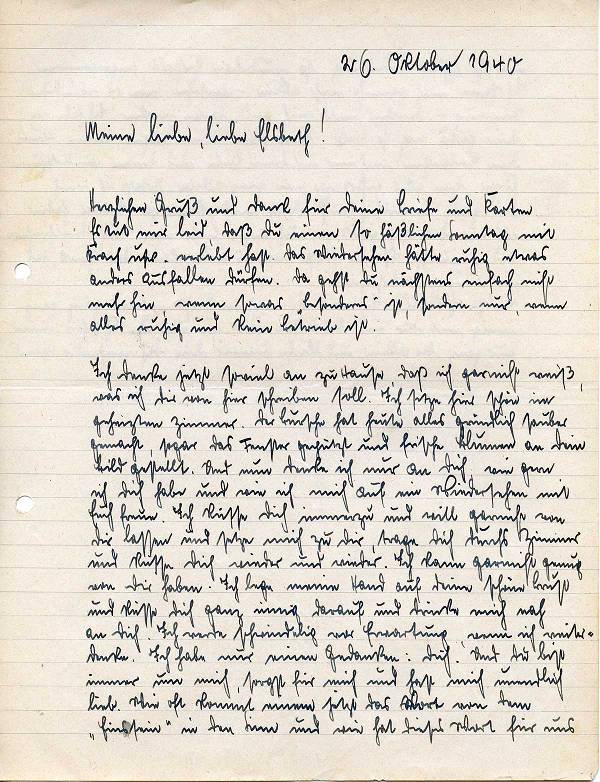 26. Oktober 1940
Meine liebe, liebe Elsbeth!
Herzlichen Gruß und Dank für Deine Briefe und Karten
Es tut mir leid daß Du einen so häßlichen Sonntag mit
Krach usw. verlebt hast. Das Wiedersehen hätte ruhig etwas
anders ausfallen dürfen. Da gehst Du nächstens einfach nicht
mehr hin, wenn sowas "besonderes" ist, sondern nur, wenn
alles ruhig und kein Betrieb ist.
Ich denke jetzt soviel an zu Hause, daß ich garnicht weiß,
was ich Dir von hier schreiben soll. Ich sitze hier schön im
geheizten Zimmer. Der Bursche hat heute alles gründlich sauber
gemacht, sogar das Fenster geputzt und frische Blumen an Dein
Bild gestellt. Und nun denke ich nur an Dich, wie gern
ich Dich habe und wie ich mich auf ein Wiedersehen mit
Euch freue. Ich küsse Dich immerzu und will garnicht von
Dir lassen und setze mich zu Dir, trage Dich durchs Zimmer
und küsse Dich wieder und wieder. Ich kann garnicht genug
von Dir haben. Ich lege meine Hand auf Deine schöne Brust
und küsse Dich ganz innig darauf und drücke mich nah
an Dich. Ich werde schwindelig vor Erwartung, wenn ich weiter-
denke. Ich habe nur einen Gedanken: Dich. Und Du bist
immer um mich, sorgst für mich und hast mich unendlich
lieb. Wie oft kommt einem jetzt das Wort von dem
„Einssein" in den Sinn und wie hat dieses Wort für uns